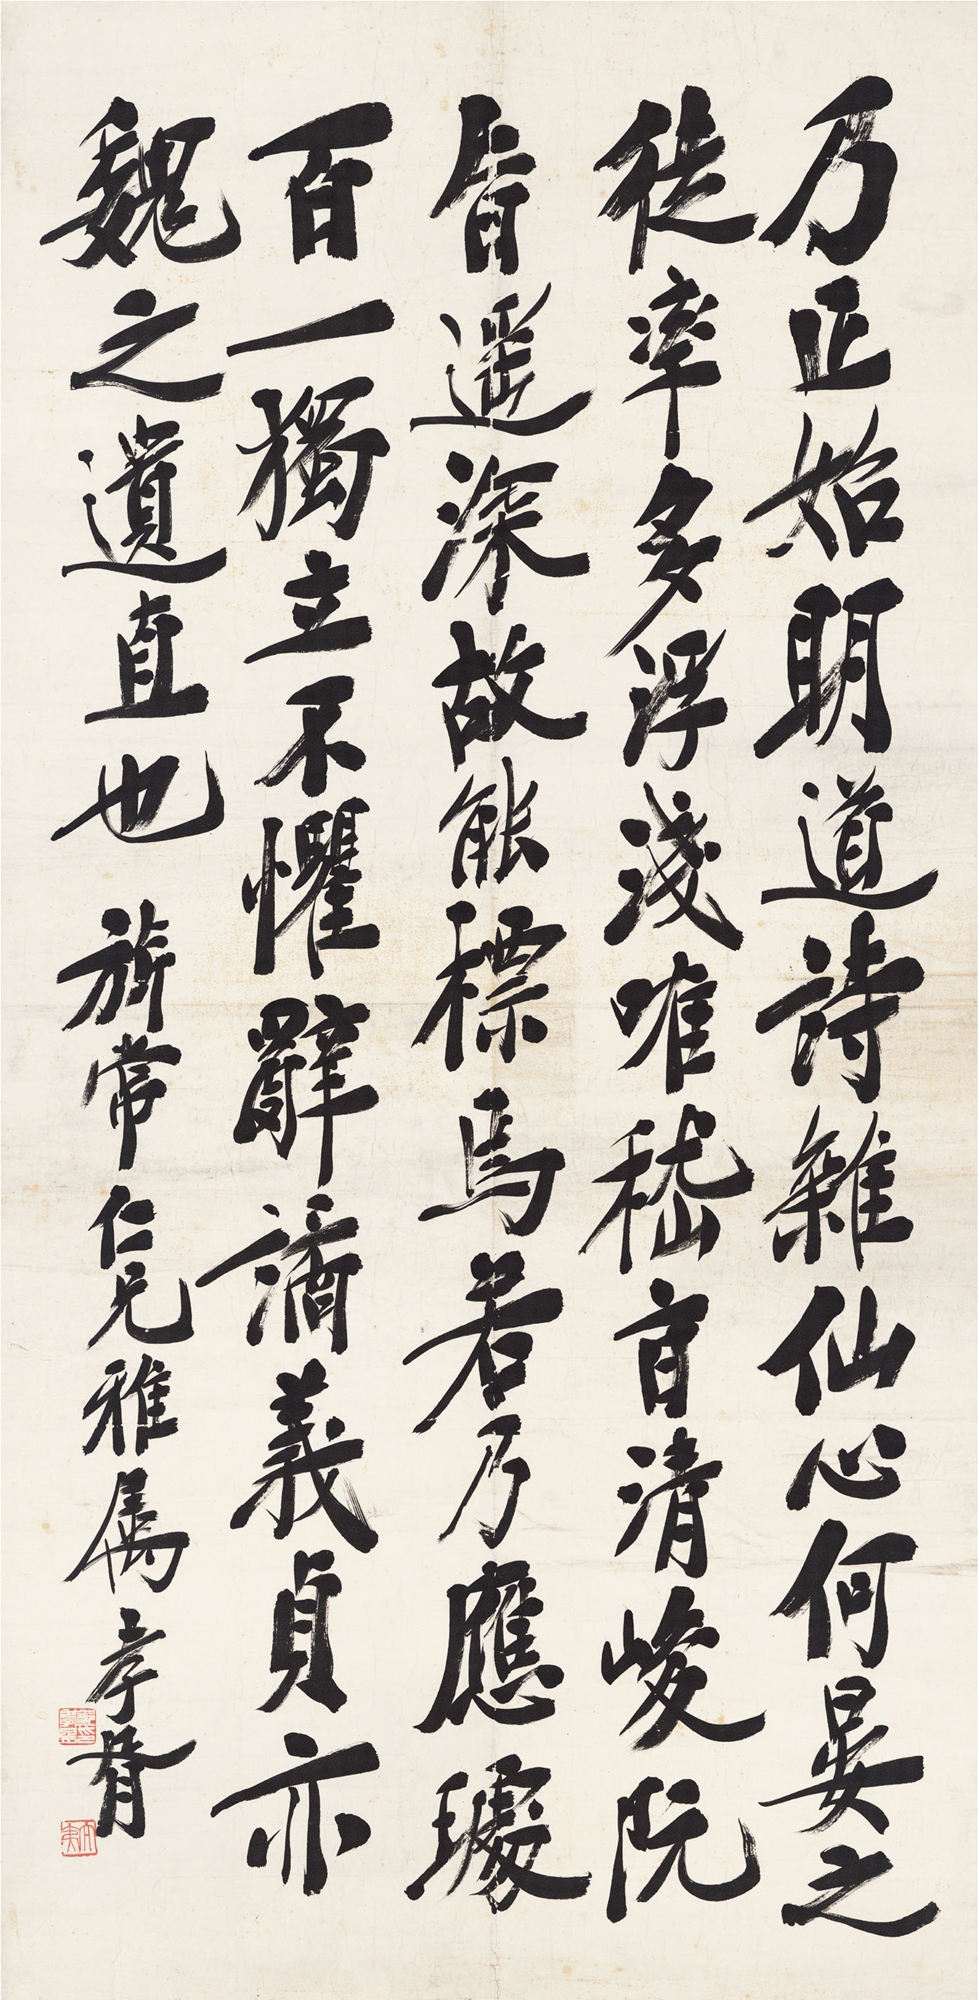 乃正始明道詩雜仙心何晏之
徒率多浮淺唯嵇旨清峻阮
旨遥深故能標焉若乃應璩
百一獨立不懼辭譎義貞亦
魏之遺直也 旂常仁兄雅屬 孝胥